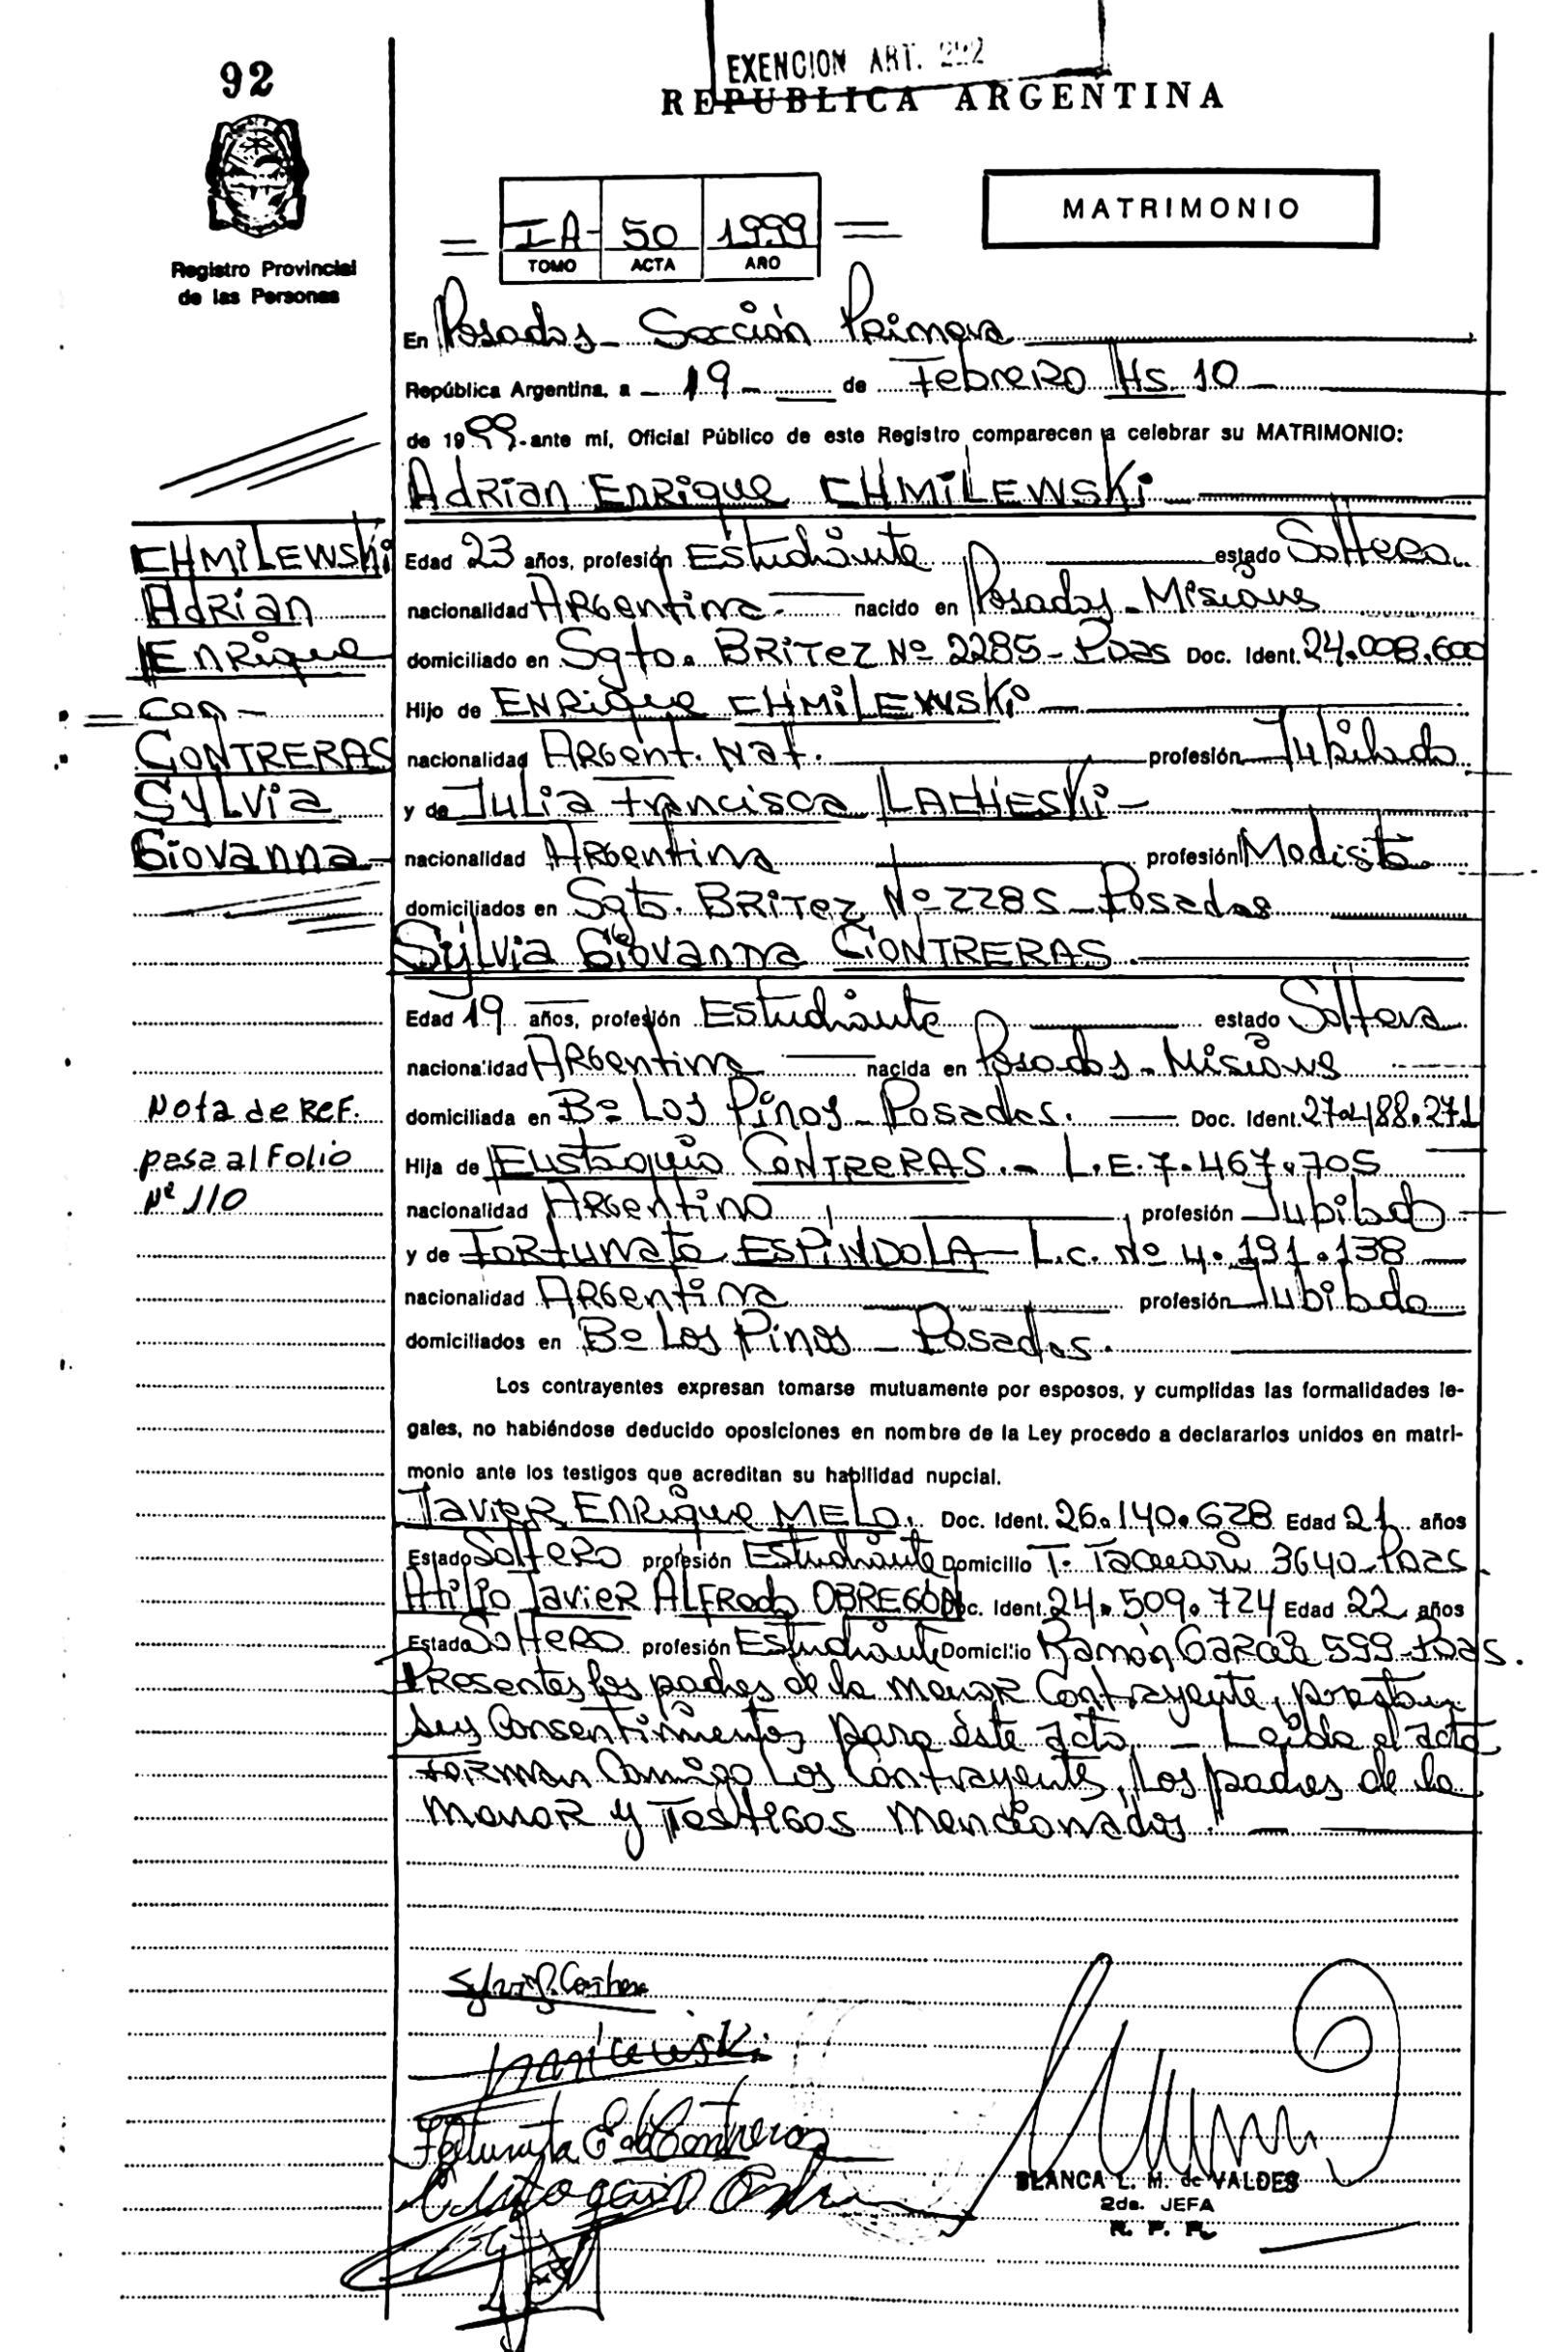 92
EXENCION ART. 292
REPUBLICA ARGENTINA
Registro Provincial
de las Personas
I A - 50 1999
TOMO ACTA AÑO
MATRIMONIO
En Posadas - Sección Primera
República Argentina, a 19 de Febrero Hs 10
de 1999 - ante mí, Oficial Público de este Registro comparecen a celebrar su MATRIMONIO:
Adrian Enrique CHMILEWSKI
CHMILEWSKI
Adrian
Enrique
con
CONTRERAS
Sylvia
Giovanna
Edad 23 años, profesión Estudiante estado Soltero.
nacionalidad Argentina nacido en Posadas - Misiones
domiciliado en Sgto. BRITEZ Nº 2285 - Pdas Doc. Ident. 24.008.600
Hijo de ENRIQUE CHMILEWSKI
nacionalidad Argent. Nat. profesión Jubilado
y de Julia Francisca LACHESKI
nacionalidad Argentina profesión Modista
domiciliados en Sgto. BRITEZ Nº 2285 - Posadas
Sylvia Giovanna CONTRERAS.
Edad 19 años, profesión Estudiante estado Soltera
nacionalidad Argentina nacida en Posadas - Misiones
domiciliada en Bº Los Pinos - Posadas. Doc. Ident. 27.488.271
Hija de Eustaquio CONTRERAS. - L.E. 7.467.705
nacionalidad Argentino profesión Jubilado
y de Fortunata ESPINDOLA - L.C. Nº 4.191.138
nacionalidad Argentina profesión Jubilada
domiciliados en Bº Los Pinos - Posadas.
Nota de REF.
pasa al Folio
Nº 110
Los contrayentes expresan tomarse mutuamente por esposos, y cumplidas las formalidades le-
gales, no habiéndose deducido oposiciones en nombre de la Ley procedo a declararlos unidos en matri-
monio ante los testigos que acreditan su habilidad nupcial.
Javier Enrique MELO. Doc. Ident. 26.140.628 Edad 21 años
Estado Soltero profesión Estudiante Domicilio T. Tacuarí 3640 - Pdas
Atilio Javier ALFREDO OBREGÓN Doc. Ident. 24.509.724 Edad 22 años
Estado Soltero profesión Estudiante Domicilio Ramón García 599 - Pdas.
Presentes los padres de la menor Contrayente, prestan
sus Consentimientos para éste acto. - Leída el acta
firman Conmigo Los Contrayentes, Los padres de la
menor y Testigos mencionados. -
Fortunata E de Contreras
BLANCA L. M. de VALDES
2da. JEFA
R. P. P.